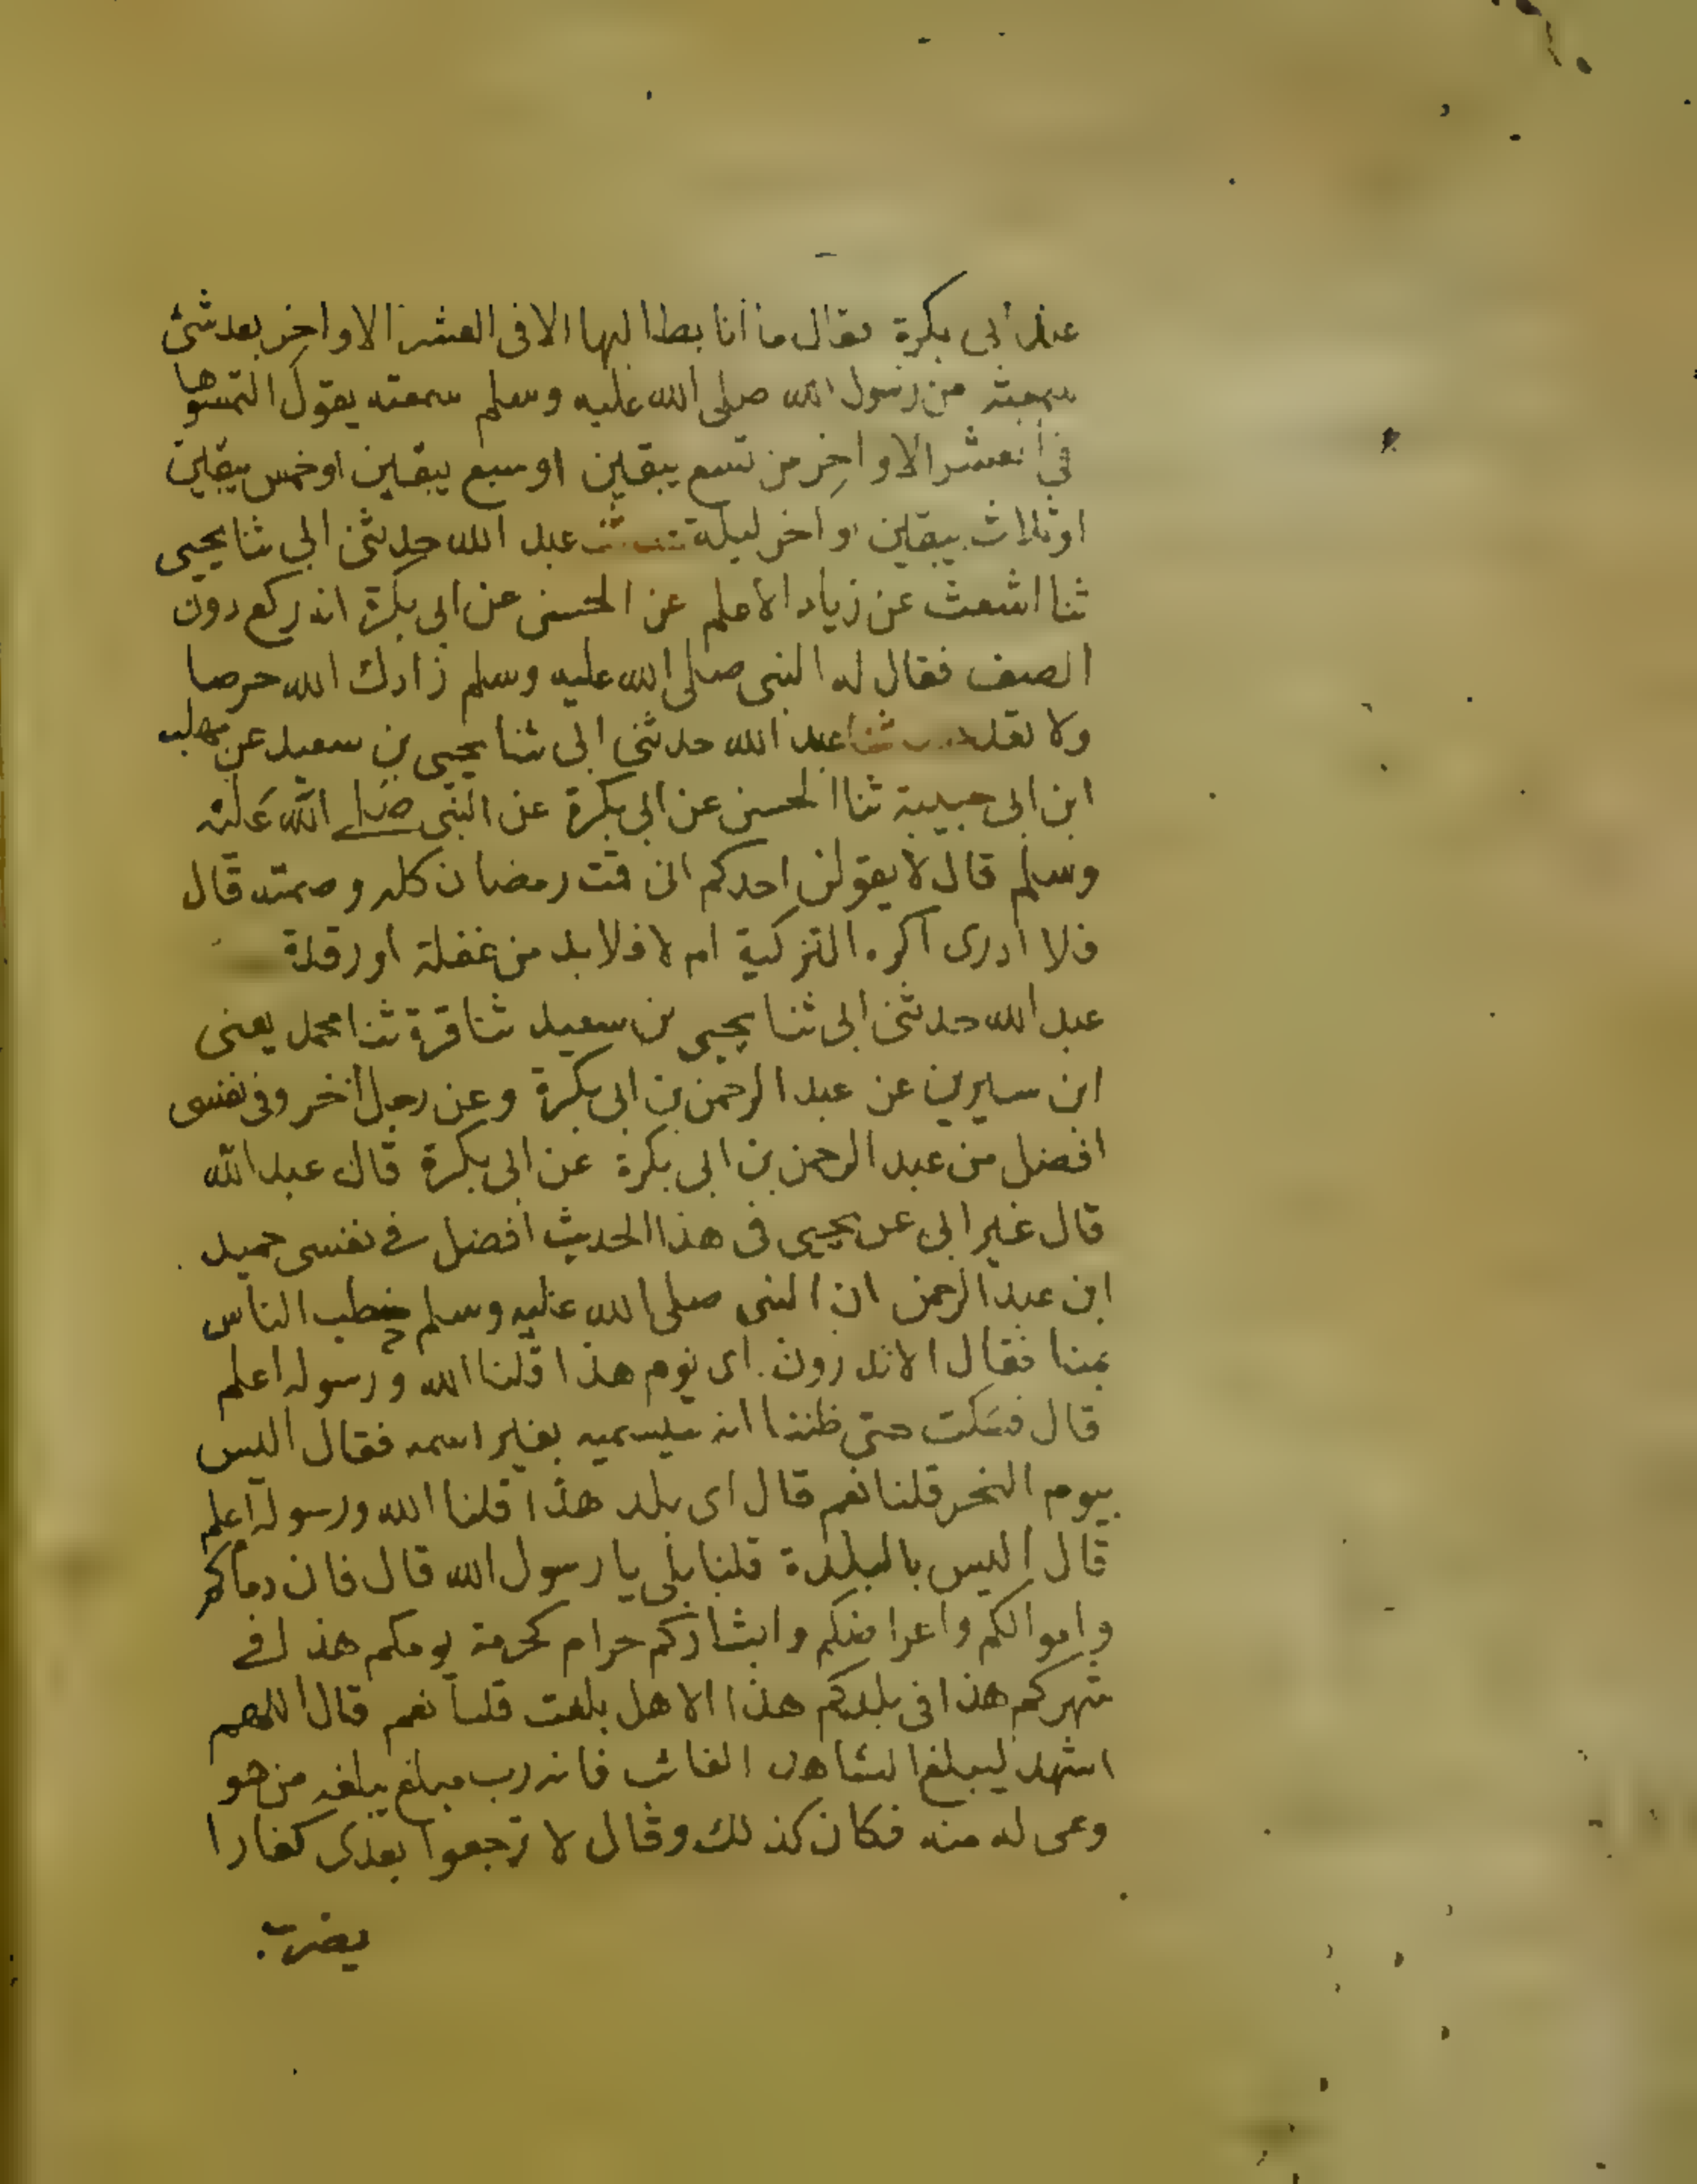 عند ابى بكرة فقال ما انا بطالبها الا فى العشر الاواخر بعد شئ
سمعته من رسول الله صلى الله عليه وسلم سمعته يقول التمسوها
في العشر الاواخر من تسع يبقين او سبع يبقين او خمس يبقين
او ثلاث يبقين او آخر ليلة عبد الله حدثنى ابى ثنا يحيى
ثنا اشعث عن زياد الاعلم عن الحسن عن ابى بكرة انه ركع دون
الصف فقال له النبى صلى الله عليه وسلم زادك الله حرصا
ولا تعد ثنا عبد الله حدثنى ابى ثنا يحيى بن سعيد عن مهلب
ابن ابى حبيبة ثنا الحسن عن ابى بكرة عن النبى صلى الله عليه
وسلم قال لا يقولن احدكم انى قمت رمضان كله وصمته قال
فلا ادرى اكره التزكية ام لا فلا بد من غفلة او رقدة
عبد الله حدثنى ابى ثنا يحيى بن سعيد ثنا قرة ثنا محمد يعنى
ابن سيرين عن عبد الرحمن بن ابى بكرة وعن رجل اخر وفى نفسى
افضل من عبد الرحمن بن ابى بكرة عن ابى بكرة قال عبد الله
قال غير ابى عن يحيى فى هذا الحديث افضل في نفسى حميد
ابن عبد الرحمن ان النبى صلى الله عليه وسلم خطب الناس
بمنا فقال الا تدرون اى يوم هذا قلنا الله ورسوله اعلم
قال فسكت حتى ظننا انه سيسميه بغير اسمه فقال اليس
بيوم النحر قلنا نعم قال اى بلد هذا قلنا الله ورسوله اعلم
قال اليس بالبلدة قلنا بلى يا رسول الله قال فان دماكم
واموالكم واعراضكم وابشاركم حرام كحرمة يومكم هذا في
شهركم هذا فى بلدكم هذا الا هل بلغت قلنا نعم قال اللهم
اشهد ليبلغ الشاهد الغائب فانه رب مبلغ يبلغه من هو
وعى له منه فكان كذلك وقال لا ترجعوا بعدى كفارا
يضرب